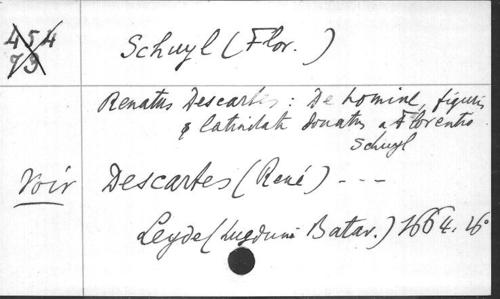 454
79
Schuyl (Flor.)
Renatus Descartes: De homine, figuris
& latinitate donatus a Florentio
Schuyl
Voir Descartes (René) - - -
Leyde (Lugduni Batav.) 1664. 16°